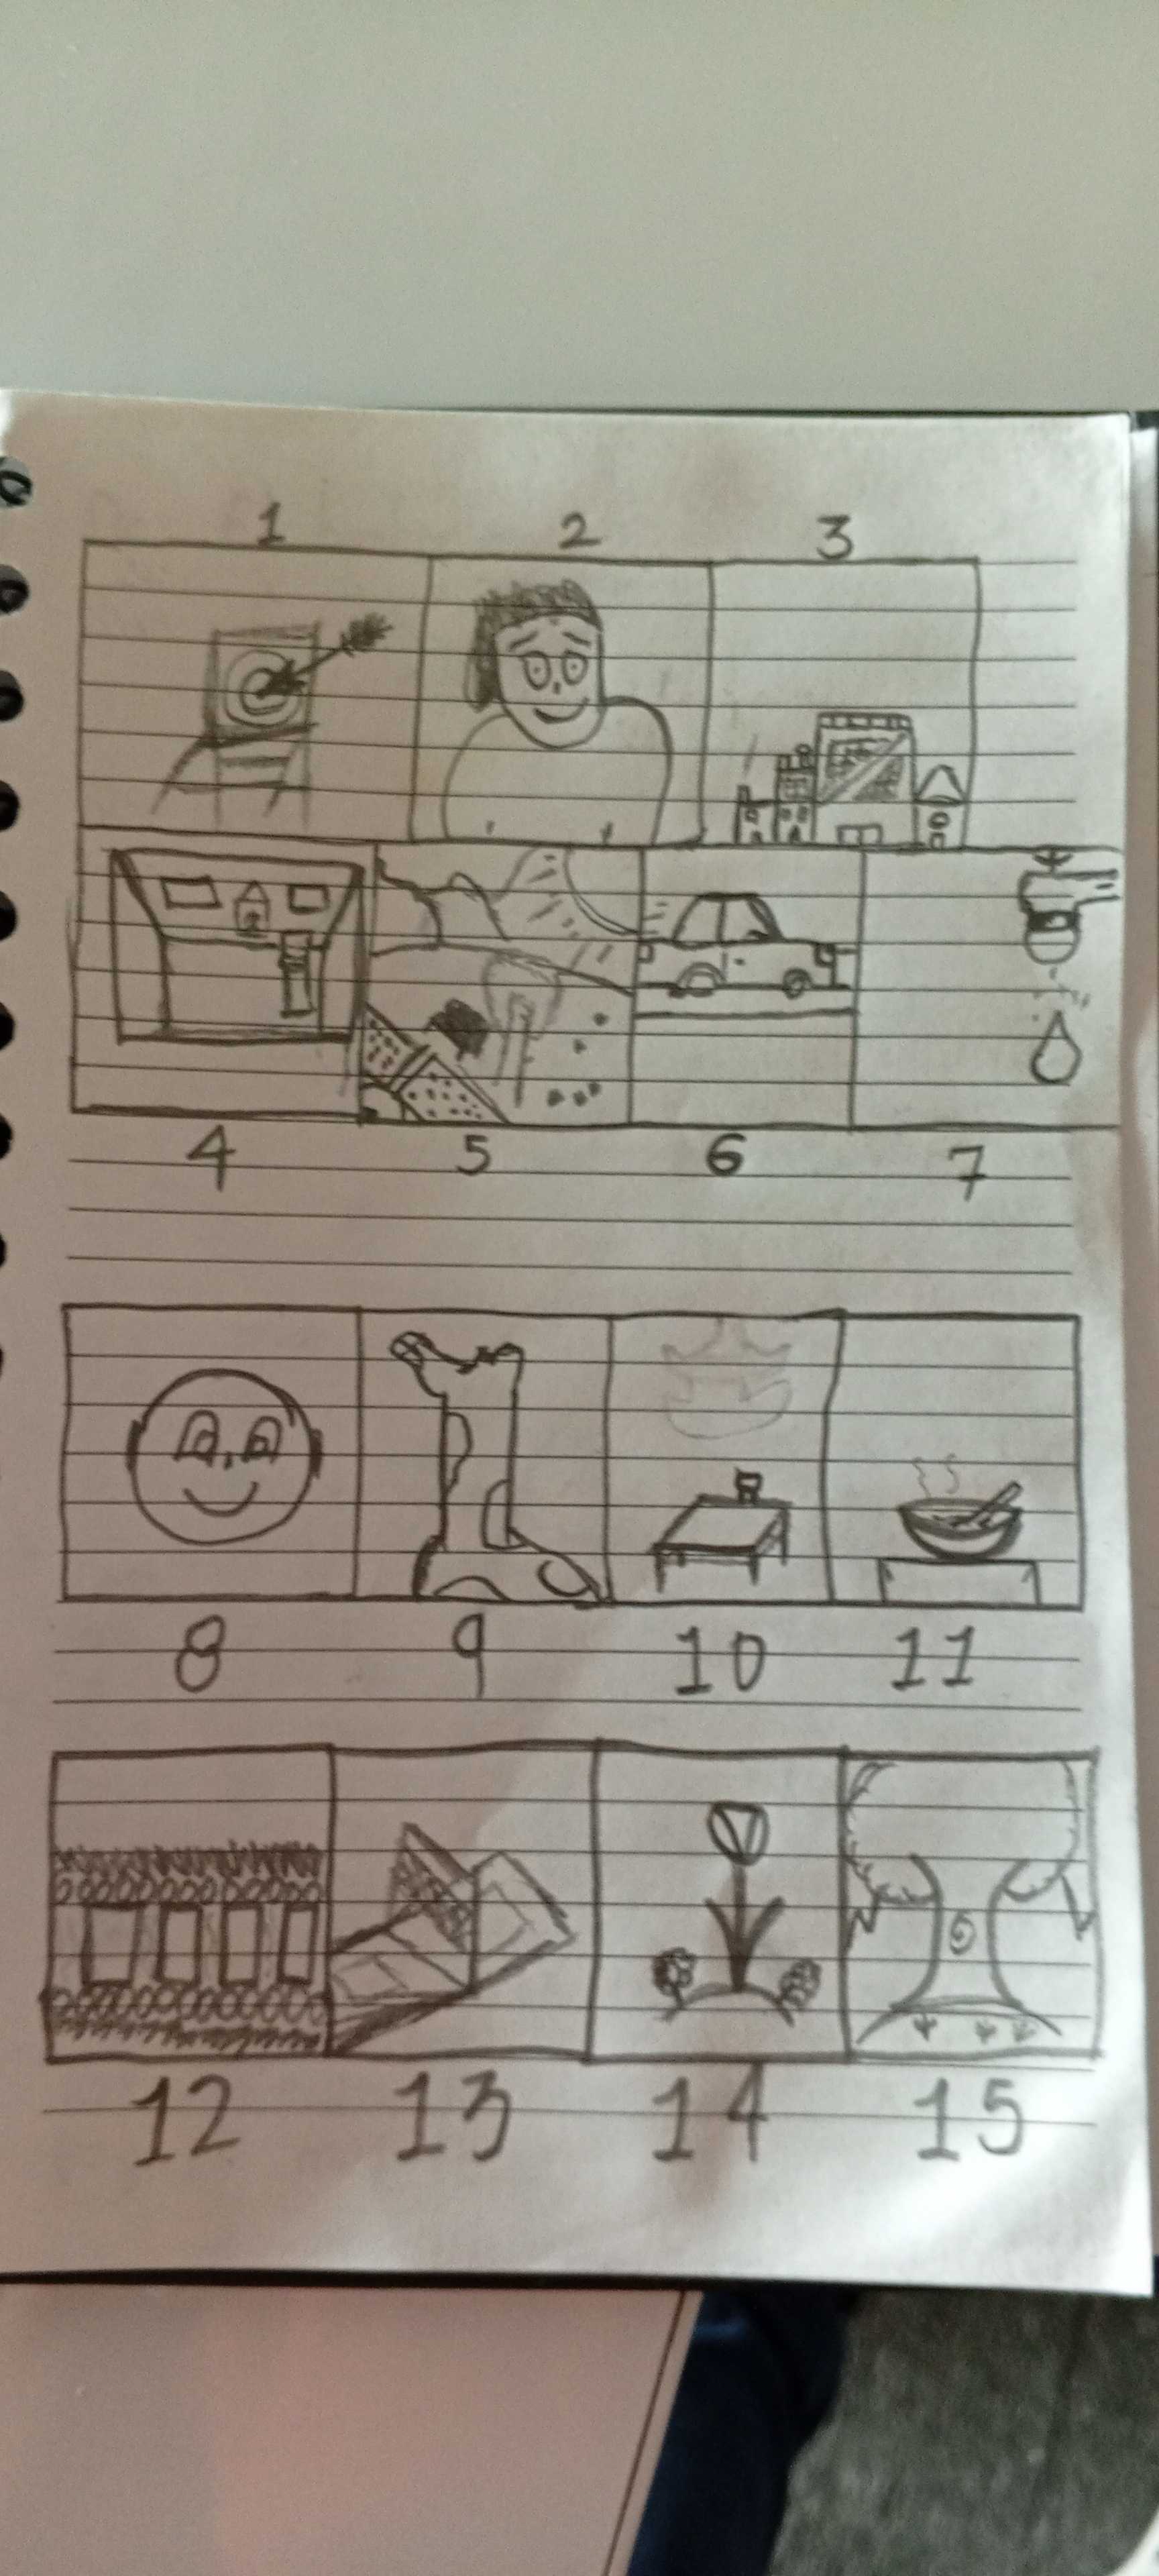 1 2 3
4 5 6 7
8 9 10 11
12 13 14 15